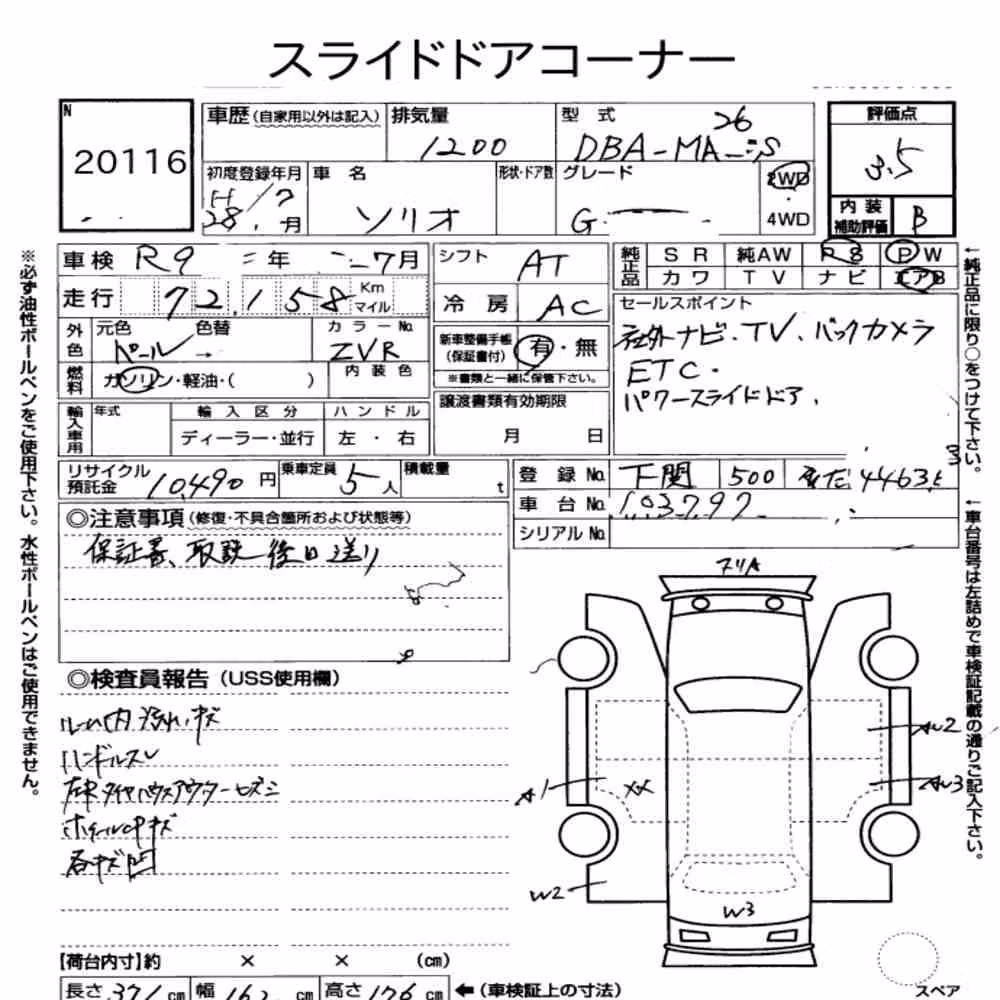 スライドドアコーナー
N
20116
車歴 (自家用以外は記入)
排気量
1200
型式
DBA-MA26S
評価点
3.5
初度登録年月
H 28, /7月
車名
ソリオ
形状・ドア数
グレード
G
2WD
・
4WD
内装
補助評価
B
車検 R9年 7月
シフト
AT
純正品
SR 純AW PS PW
カワ TV ナビ エアB
走行 72,158 Km マイル
冷房
AC
セールスポイント
社外ナビ.TV.バックカメラ
ETC.
パワースライドドア.
外色
元色 色替
パール →
カラーNo.
ZVR
新車整備手帳
(保証書付)
有・無
※書類と一緒に保管下さい。
燃料
ガソリン・軽油・( )
内装色
輸入車用
年式
輸入区分
ディーラー・並行
ハンドル
左・右
譲渡書類有効期限
月 日
リサイクル
預託金
10,490円
乗車定員
5人
積載量
t
登録No. 下関 500 4463
車台No. 103797
シリアルNo.
◎注意事項 (修復・不具合箇所および状態等)
保証書、取説 後日送り
◎検査員報告 (USS使用欄)
ルーム内汚れ、キズ
ハンドルスレ
左Rタイヤハウスアウターヒズミ
ホイールCPキズ
各キズ凹
A1
XX
W2
W3
AW2
AW3
スペア
【荷台内寸】約 × × (cm)
長さ 371 cm 幅 162 cm 高さ 176 cm ←(車検証上の寸法)
※必ず油性ボールペンをご使用下さい。水性ボールペンはご使用できません。
←純正品に限り○をつけて下さい。
←車台番号は左詰めで車検証記載の通りご記入下さい。